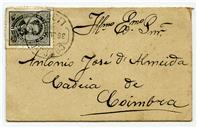 Illmo Exmo Snr.
Antonio José d'Almeida
Cadeia de
Coimbra